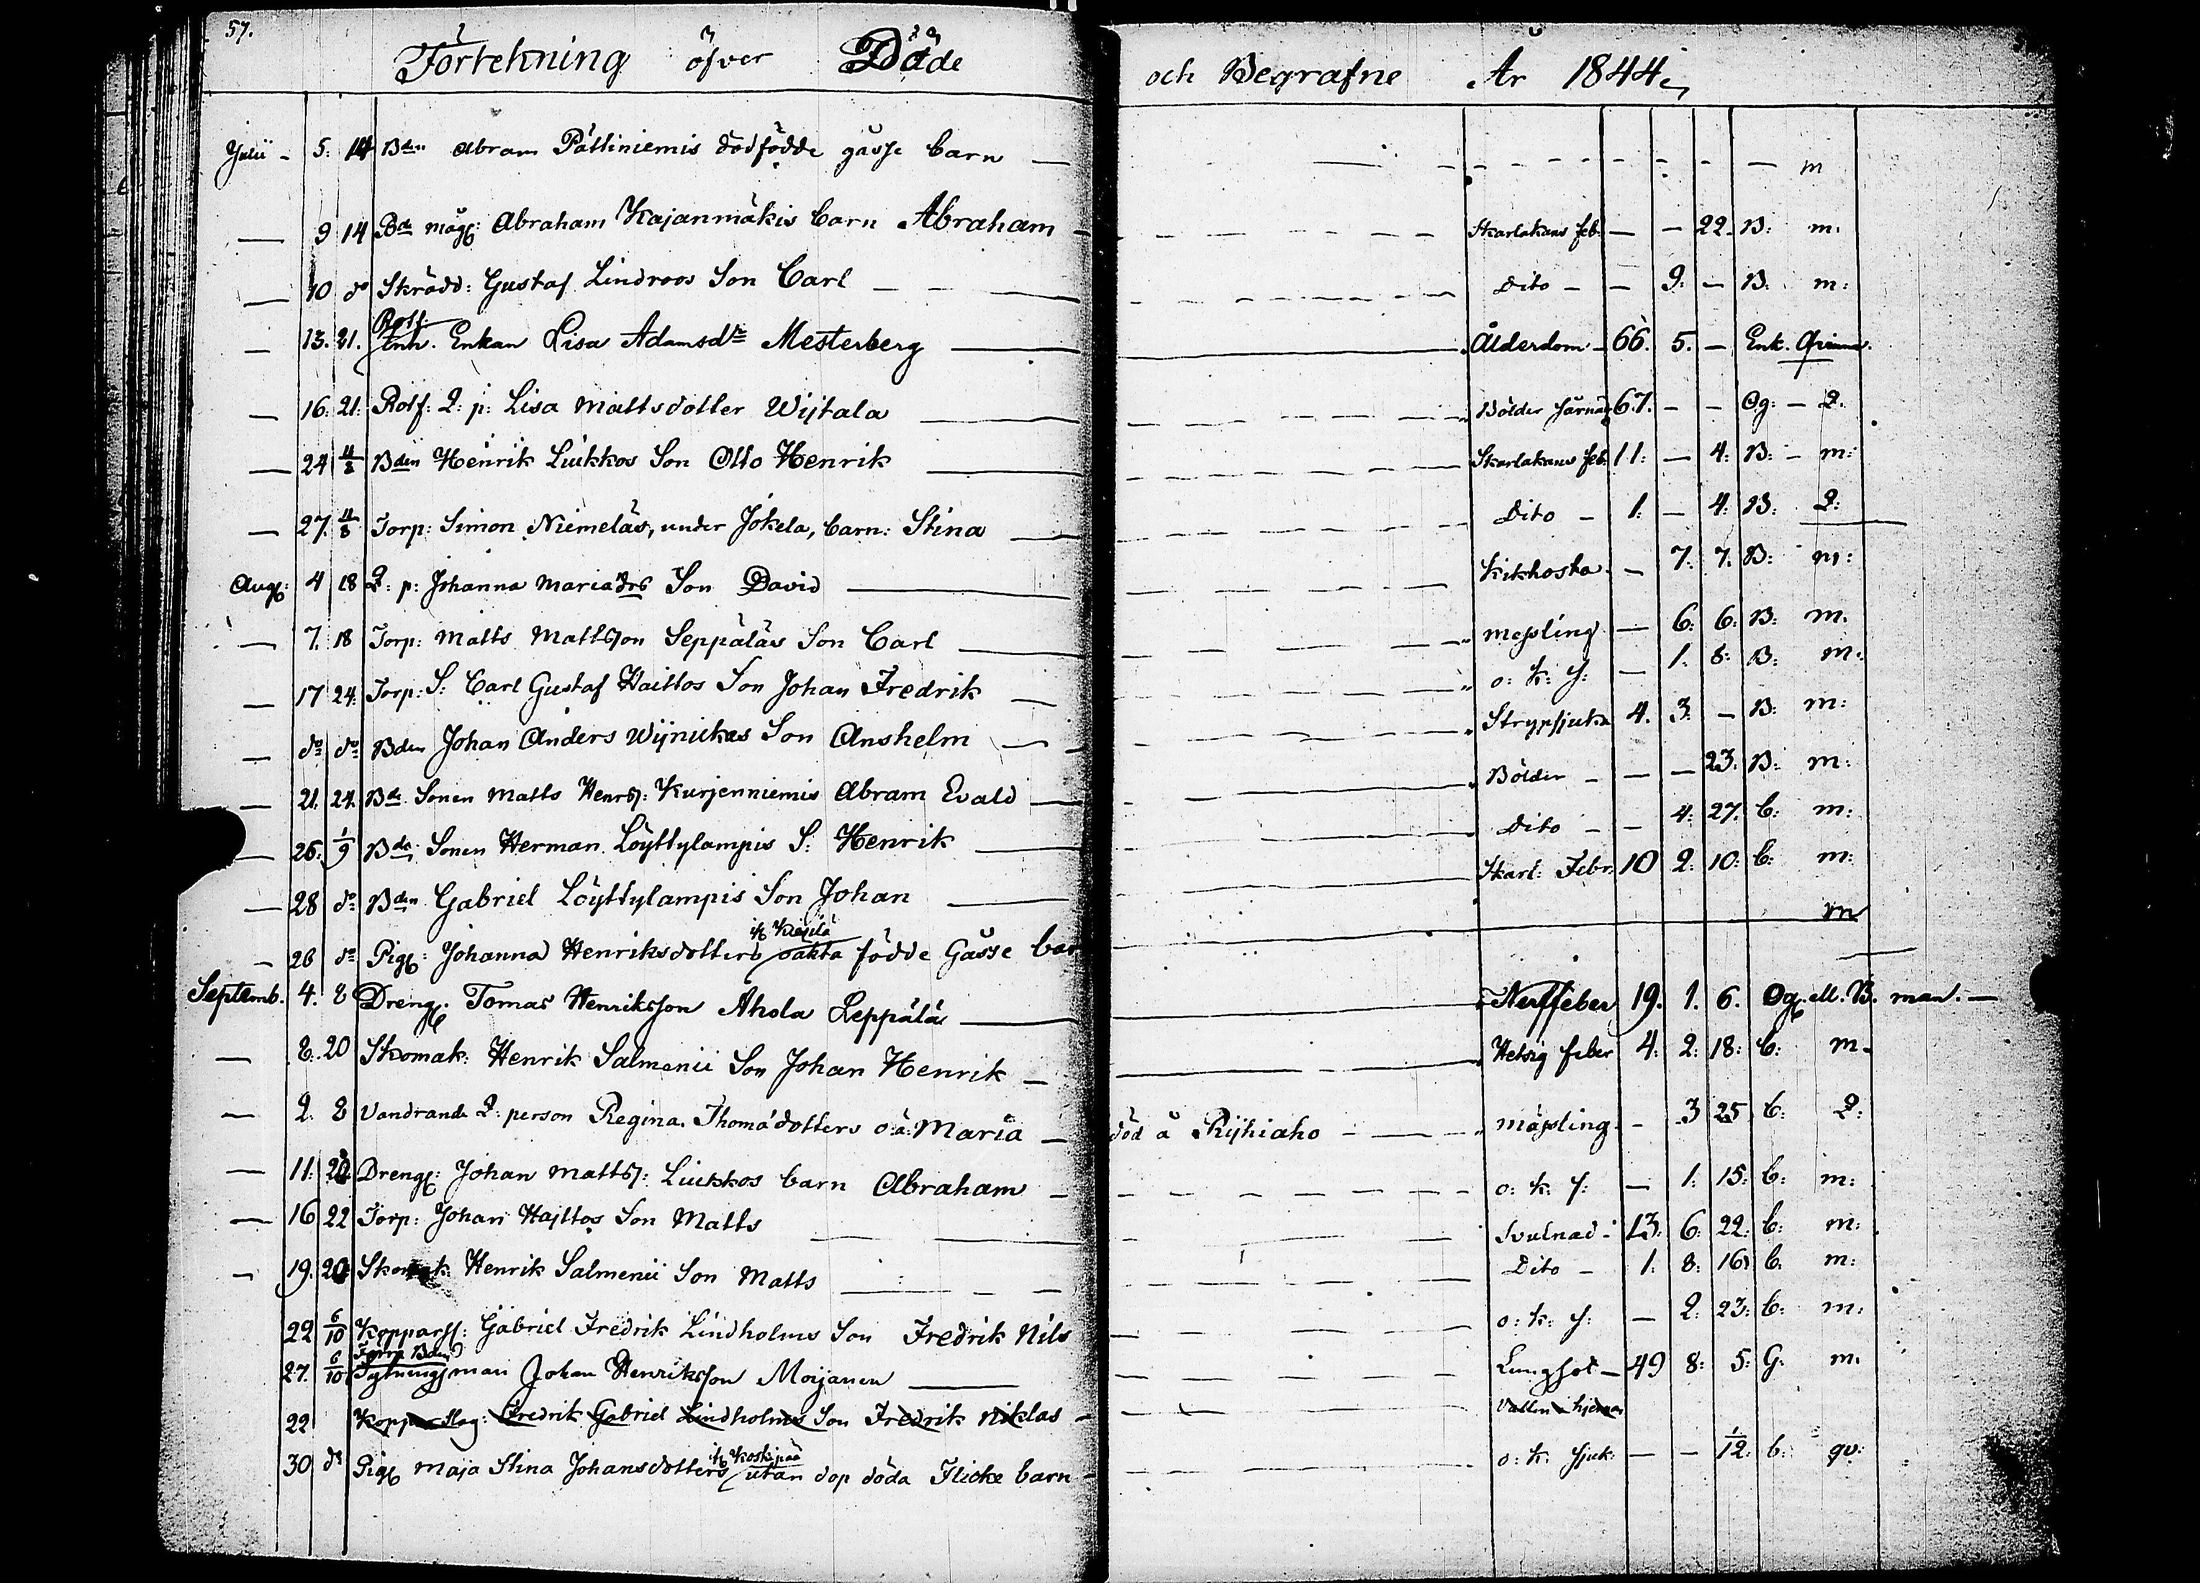 57.
Förtekning öfver Döde och Begrafne År 1844
Julii - 5. 14 Bdn Abram Pältiniemis dödfödde gåsse barn — m
— 9 14 Bde måg: Abraham Kajanmäkis barn Abraham — Skarlakans feb. — — 22. B: m.
— 10 do Skrädd: Gustaf Lindroos Son Carl — Dito — — 9. — B. m:
Rotf.
— 13. 21. Enk. Enkan Lisa Adamsdr Mesterberg — Ålderdom 66. 5. — Enk. Qvinna.
— 16. 21. Rotf: Q: p: Lisa Mattsdotter Wijtala — Bölder 67. — — Og: — Q.
— 24 4/8 Bden Henrik Luikkos Son Otto Henrik — Skarlakans feb. 11. — 4. B: — m:
— 27. 4/8 Torp: Simon Niemeläs, under Jokela, barn: Stina — Dito — 1. — 4. B: Q:
Aug: 4 18 Q: p: Johanna Mariadrs Son David — Kikhosta. — 7. 7. B: m:
— 7. 18 Torp: Matts Mattsson Seppäläs Son Carl — Messling — 6. 6. B: m.
— 17 24. Torp: S: Carl Gustaf Haittos Son Johan Fredrik — o: k: s: — 1. 8. B: m.
— do do Bden Johan Anders Wijnickas Son Anshelm — Strypsjuka 4. 3. — B: m:
— 21. 24. Bde Sonen Matts Henrs: Kurjenniemis Abram Evald — Bölder — — — 23. B: m:
— 26. 1/9 Bde Sonen Herman Löyttylampis S: Henrik — Dito — — 4: 27. b: m:
— 28 do Bden Gabriel Löyttylampis Son Johan — Skarl: Febr. 10 2: 10: b: m:
— 26 do Pig: Johanna Henriksdotters oäkta födde Gåsse bar — m
Septemb. 4. 8 Dreng: Tomas Henriksson Ahola Leppälä — Nerffeber 19. 1. 6. Og. ell. B. man. —
— 8. 20 Skomak: Henrik Salmenii Son Johan Henrik — Hetsig feber 4: 2: 18: b: m.
— 2. 8 Vandrande Q: person Regina Thomädotters o:ä: Maria — död å Rijhiaho — mässling — 3 25 b: Q:
— 11: 20 Dreng: Johan Matts: Luikkos barn Abraham — o: k: s: — 1: 15: b: m:
— 16 22 Torp: Johan Hajttos Son Matts — Svulnad 13: 6: 22: b: m:
— 19. 20 Skomak: Henrik Salmenii Son Matts — Dito — 1. 8: 16 b. m:
22 6/10 Kopparsl: Gabriel Fredrik Lindholms Son Fredrik Nils — o: k: s: — 2: 23: b: m:
Förra Bden
27. 6/10 man Johan Henriksson Moijanen — Lungsot — 49 8: 5: G. m.
22 Kopparslag: Fredrik Gabriel Lindholms Son Fredrik Niklas —
30 do Pig: Maja Stina Johansdotters Koskipää utan dop döda Flicke barn — o: k: sjuk: — — 1/12: b: qv: